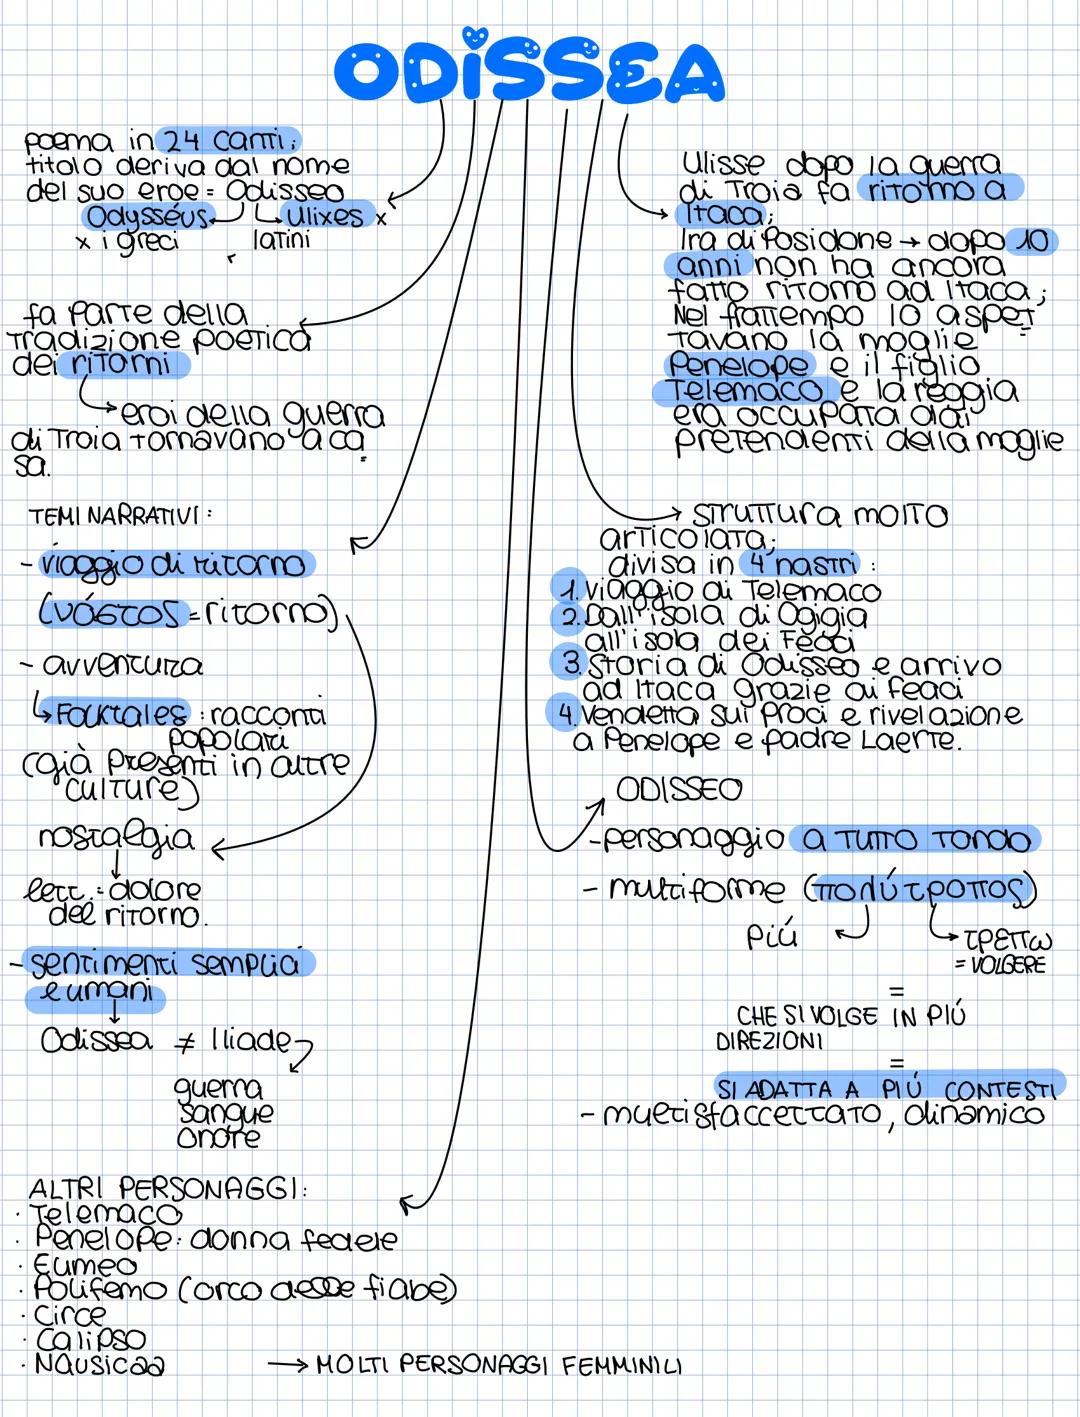 ODISSEA
poema in 24 canti;
titolo deriva dal nome
del suo eroe = Odisseo
Odysséus Ulixes x
x i greci latini
fa parte della
tradizione poetica
dei ritorni
eroi della guerra
di Troia tornavano a ca
sa.
TEMI NARRATIVI:
- viaggio di ritorno
(νόστος = ritorno)
- avventura
Folktales: racconti
popolari
(già presenti in altre
culture)
nostalgia
lett. = dolore
del ritorno.
- sentimenti semplici
e umani
Odissea ≠ Iliade
guerra
sangue
onore
ALTRI PERSONAGGI:
· Telemaco
· Penelope: donna fedele
· Eumeo
· Polifemo (orco delle fiabe)
· Circe
· Calipso
· Nausicaa → MOLTI PERSONAGGI FEMMINILI
Ulisse dopo la guerra
di Troia fa ritorno a
Itaca;
Ira di Posidone → dopo 10
anni non ha ancora
fatto ritorno ad Itaca;
Nel frattempo lo aspet
tavano la moglie
Penelope e il figlio
Telemaco e la reggia
era occupata dai
pretendenti della moglie
struttura molto
articolata;
divisa in 4 nastri:
1. Viaggio di Telemaco
2. Dall'isola di Ogigia
all'isola dei Feaci
3. Storia di Odisseo e arrivo
ad Itaca grazie ai feaci
4. Vendetta sui Proci e rivelazione
a Penelope e padre Laerte.
ODISSEO
- personaggio a tutto tondo
- multiforme (πολύτροπος)
più τρεπω
= VOLGERE
=
CHE SI VOLGE IN PIÚ
DIREZIONI
=
SI ADATTA A PIÚ CONTESTI
- multisfaccettato, dinamico